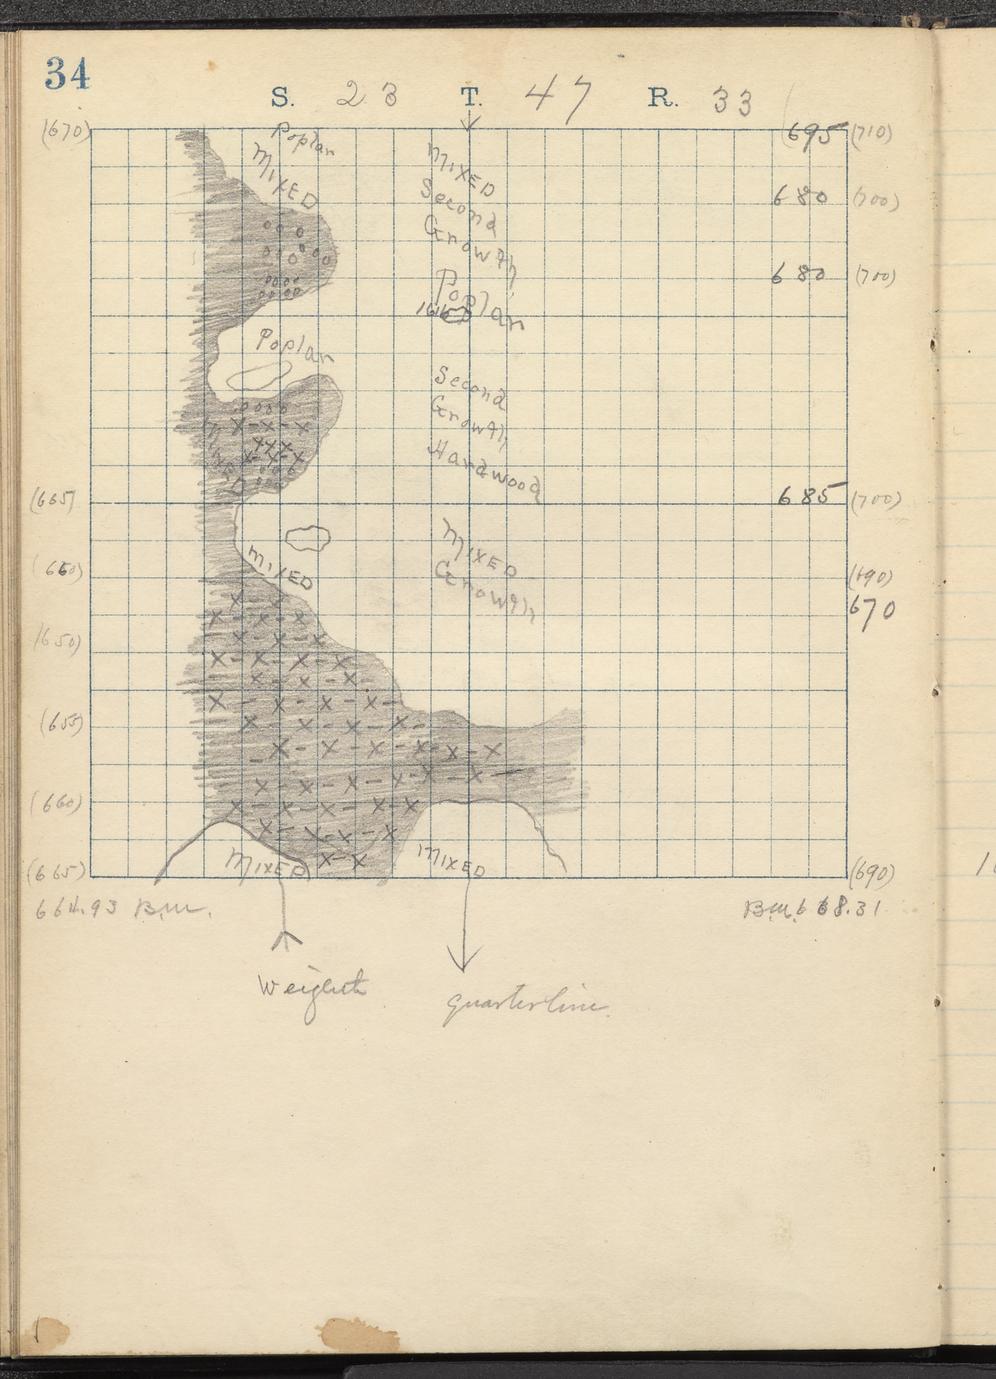 34
S. 23 T. 47 R. 33
(670) 695 (710)
Poplar
MIXED
MIXED
Second
Growth
680 (700)
680 (700)
Poplar
Poplar
Second
Growth
Hardwood
MIXED
(665) 685 (700)
MIXED
Growth
MIXED
(660) (690)
670
(650)
(655)
(660)
(665) (690)
MIXED
MIXED
664.93 B.M.
B.M. 668.31
quarterline